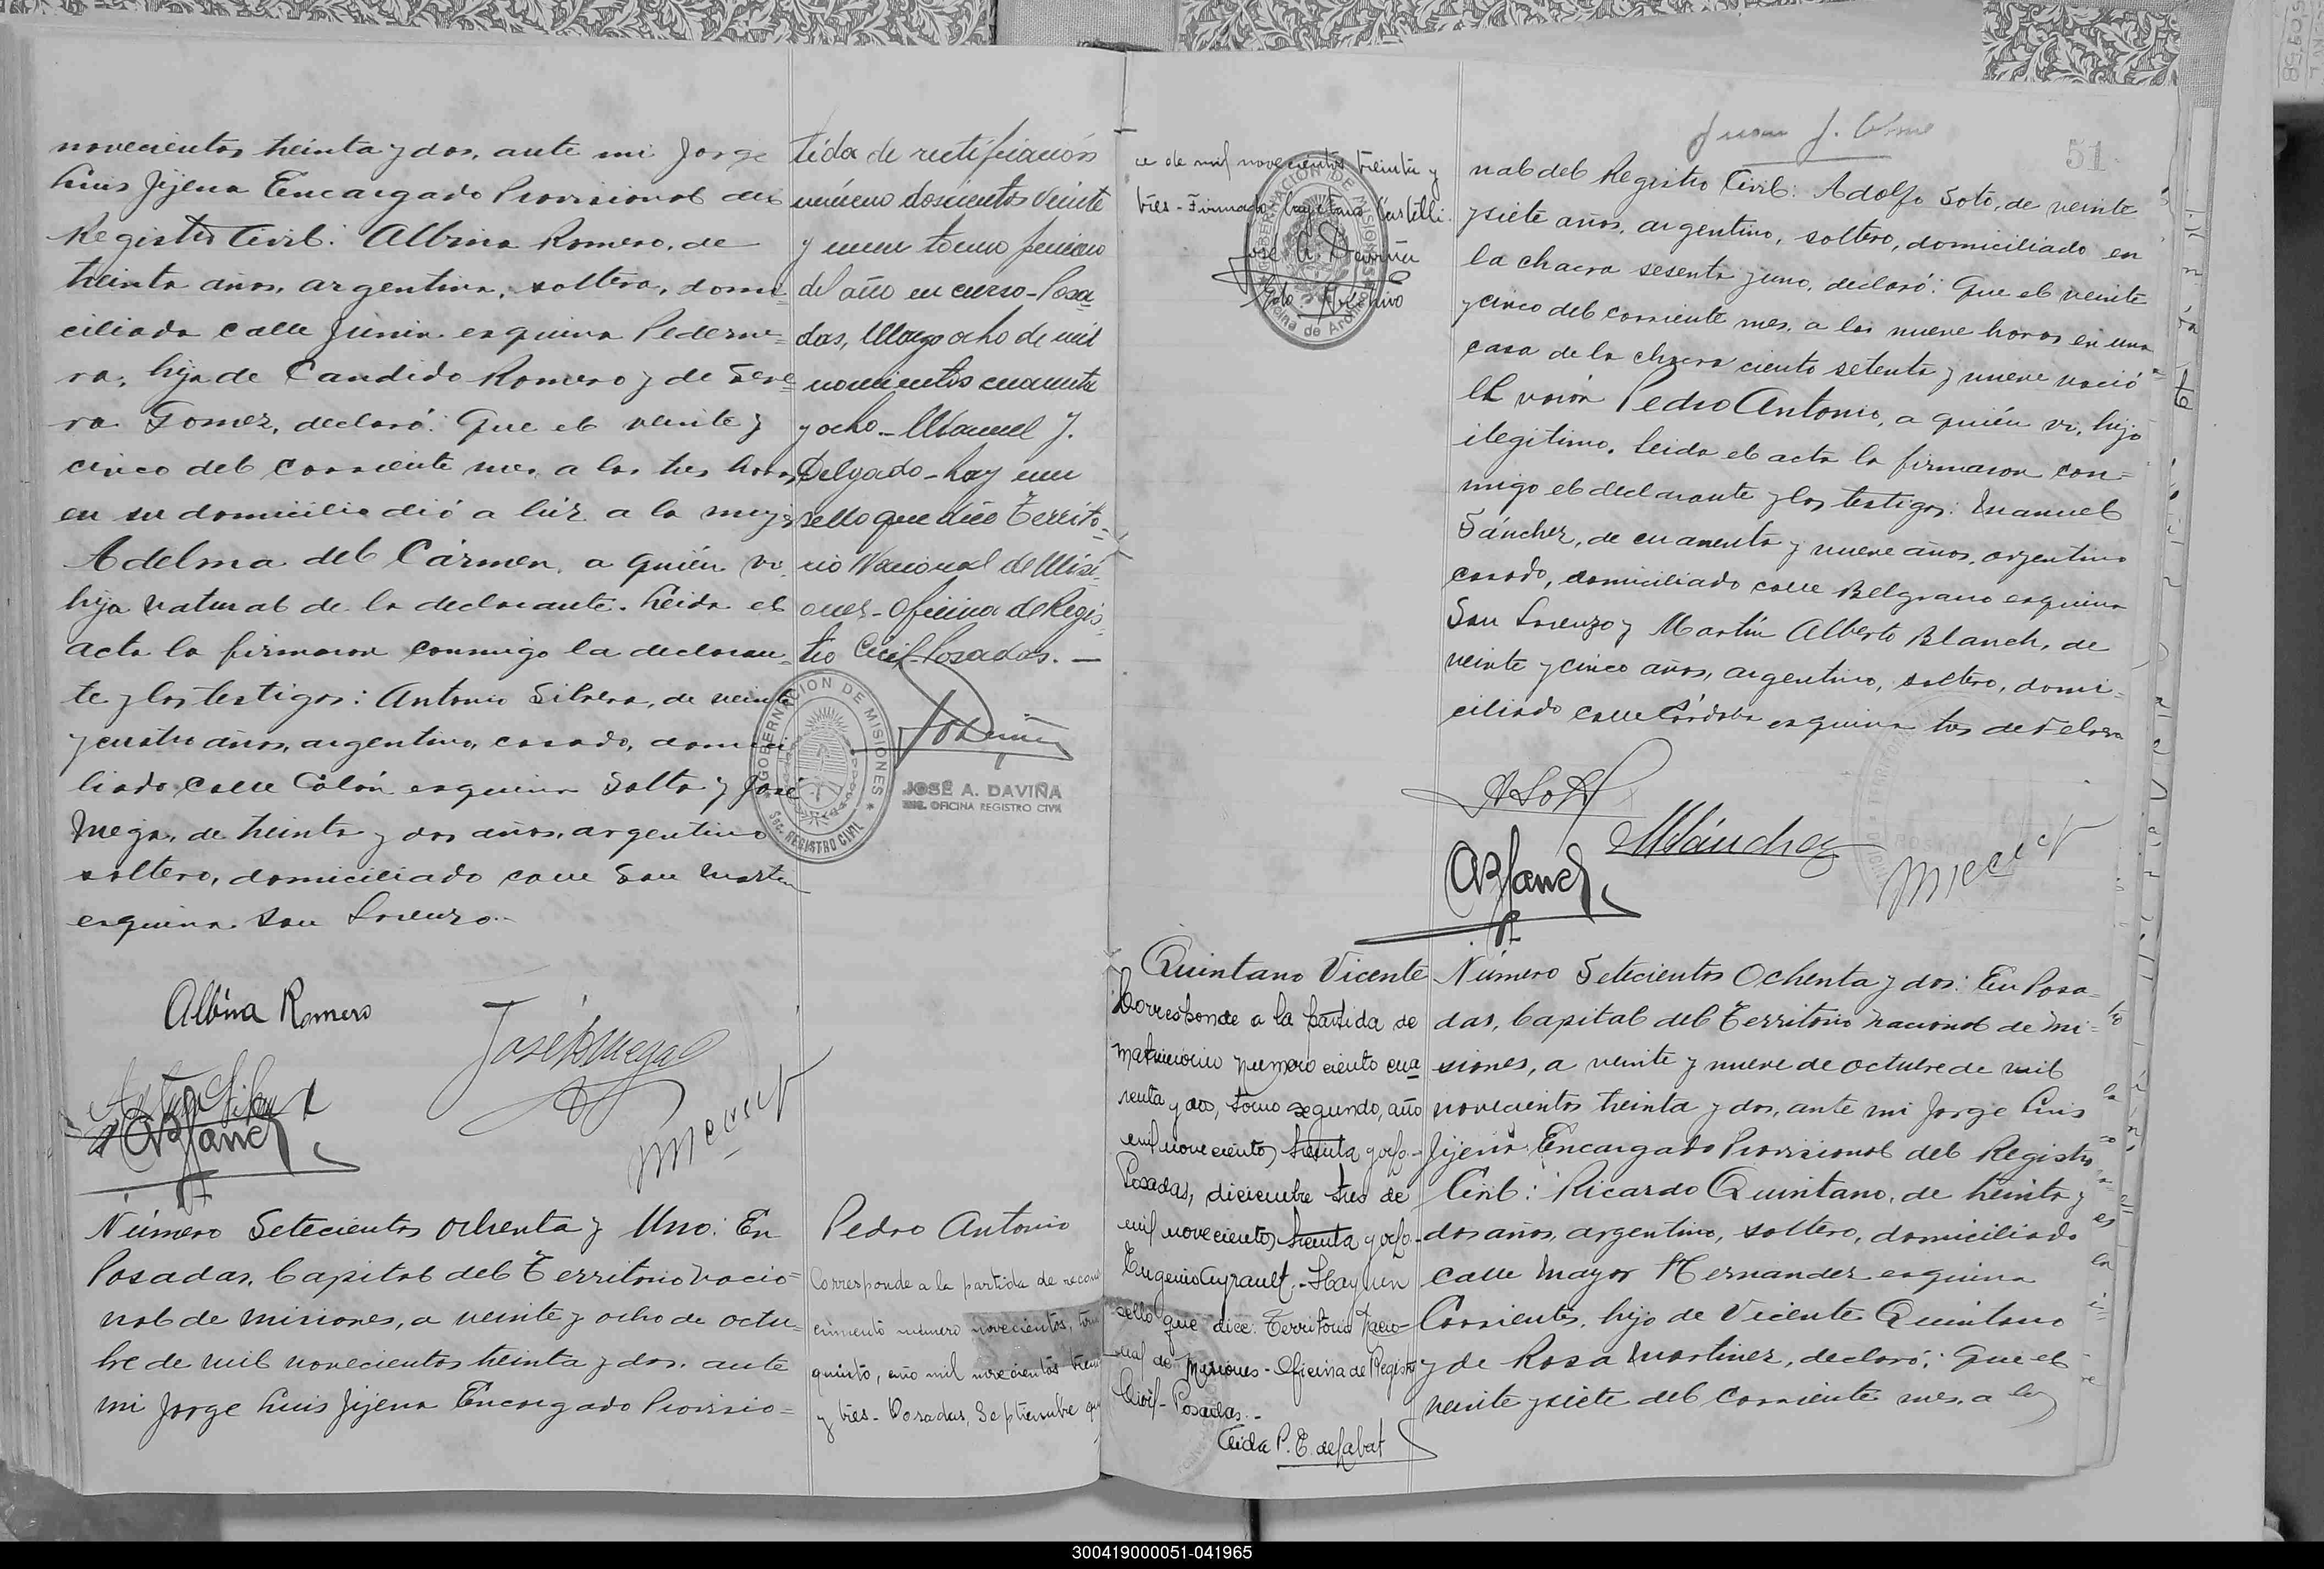 novecientos treinta y dos, ante mi Jorge
Luis Jijena Encargado Provisional del
Registro Civil: Albina Romero, de
treinta años, argentina, soltera, domi-
ciliada calle Junin esquina Pederne=
ra, hija de Candido Romero y de Seve
ra Gomez, declaró: Que el veinte y
cinco del corriente mes, a las tres horas,
en su domicilio dió a lúz a la mujer
Adelma del Cármen, a quién vi,
hija natural de la declarante. Leida el
acta la firmaron conmigo la declaran-
te y los testigos: Antonio Silvera, de veinte
y cuatro años, argentino, casado, domici
liado calle Colón esquina Salta y José
Mega, de treinta y dos años, argentino
soltero, domiciliado calle San Martin
esquina San Lorenzo.-
Albina Romero
José Mega
ABlanch
Número Setecientos Ochenta y Uno: En
Posadas, Capital del Territorio Nacio=
nal de Misiones, a veinte y ocho de octu=
bre de mil novecientos treinta y dos, ante
mi Jorge Luis Jijena Encargado Provisio=
tida de rectificación
número doscientos veinte
y tomo primero
del año en curso-Posa
das, Mayo ocho de mil
novecientos cuarenta
y ocho-Manuel J.
Delgado-hay un
sello que dice Territo-
rio Nacional de Misi-
ones-Oficina de Regis-
tro Civil-Posadas.-
GOBERNACION DE MISIONES
SEC. REGISTRO CIVIL
JOSÉ A. DAVIÑA
ENC. OFICINA REGISTRO CIVIL
Pedro Antonio
Corresponde a la partida de recono
cimiento número novecientos, tomo
quinto, año mil novecientos trein
y tres-Posadas, Septiembre qu
ce de mil novecientos treinta y
tres-Firmado Cayetano Castelli.
José A. Daviña
Archivo
GOBERNACION DE MISIONES
Oficina de Archivo
Juan J.
51
nal del Registro Civil: Adolfo Soto, de veinte
y siete años, argentino, soltero, domiciliado en
la chacra sesenta y uno, declaró: Que el veinte
y cinco del corriente mes, a las nueve horas en una
casa de la chacra ciento setenta y nueve nació
el varón Pedro Antonio, a quién vi, hijo
ilegitimo. Leida el acta la firmaron con=
migo el declarante y los testigos: Manuel
Sánchez, de cuarenta y nueve años, argentino
casado, domiciliado calle Belgrano esquina
San Lorenzo y Martin Alberto Blanch, de
veinte y cinco años, argentino, soltero, domi-
ciliado calle Córdoba esquina tres de Febrero
ASoto
MSánchez
ABlanch
Quintano Vicente
Corresponde a la partida de
matrimonio numero ciento cua
renta y dos, tomo segundo, año
mil novecientos treinta y ocho.-
Posadas, diciembre tres de
mil novecientos treinta y ocho.-
Eugenio Ayrault.-Hay un
sello que dice: Territorio Nacio-
nal de Misiones-Oficina de Registro
Civil-Posadas.-
Número Setecientos Ochenta y dos: En Posa-
das, Capital del Territorio Nacional de Mi=
siones, a veinte y nueve de octubre de mil
novecientos treinta y dos, ante mi Jorge Luis
Jijena Encargado Provisional del Registro
Civil: Ricardo Quintano, de treinta y
dos años, argentino, soltero, domiciliado
calle Mayor Hernandez esquina
Corrientes, hijo de Vicente Quintano
y de Rosa Martinez, declaró: Que el
veinte y siete del corriente mes, a las
300419000051-041965